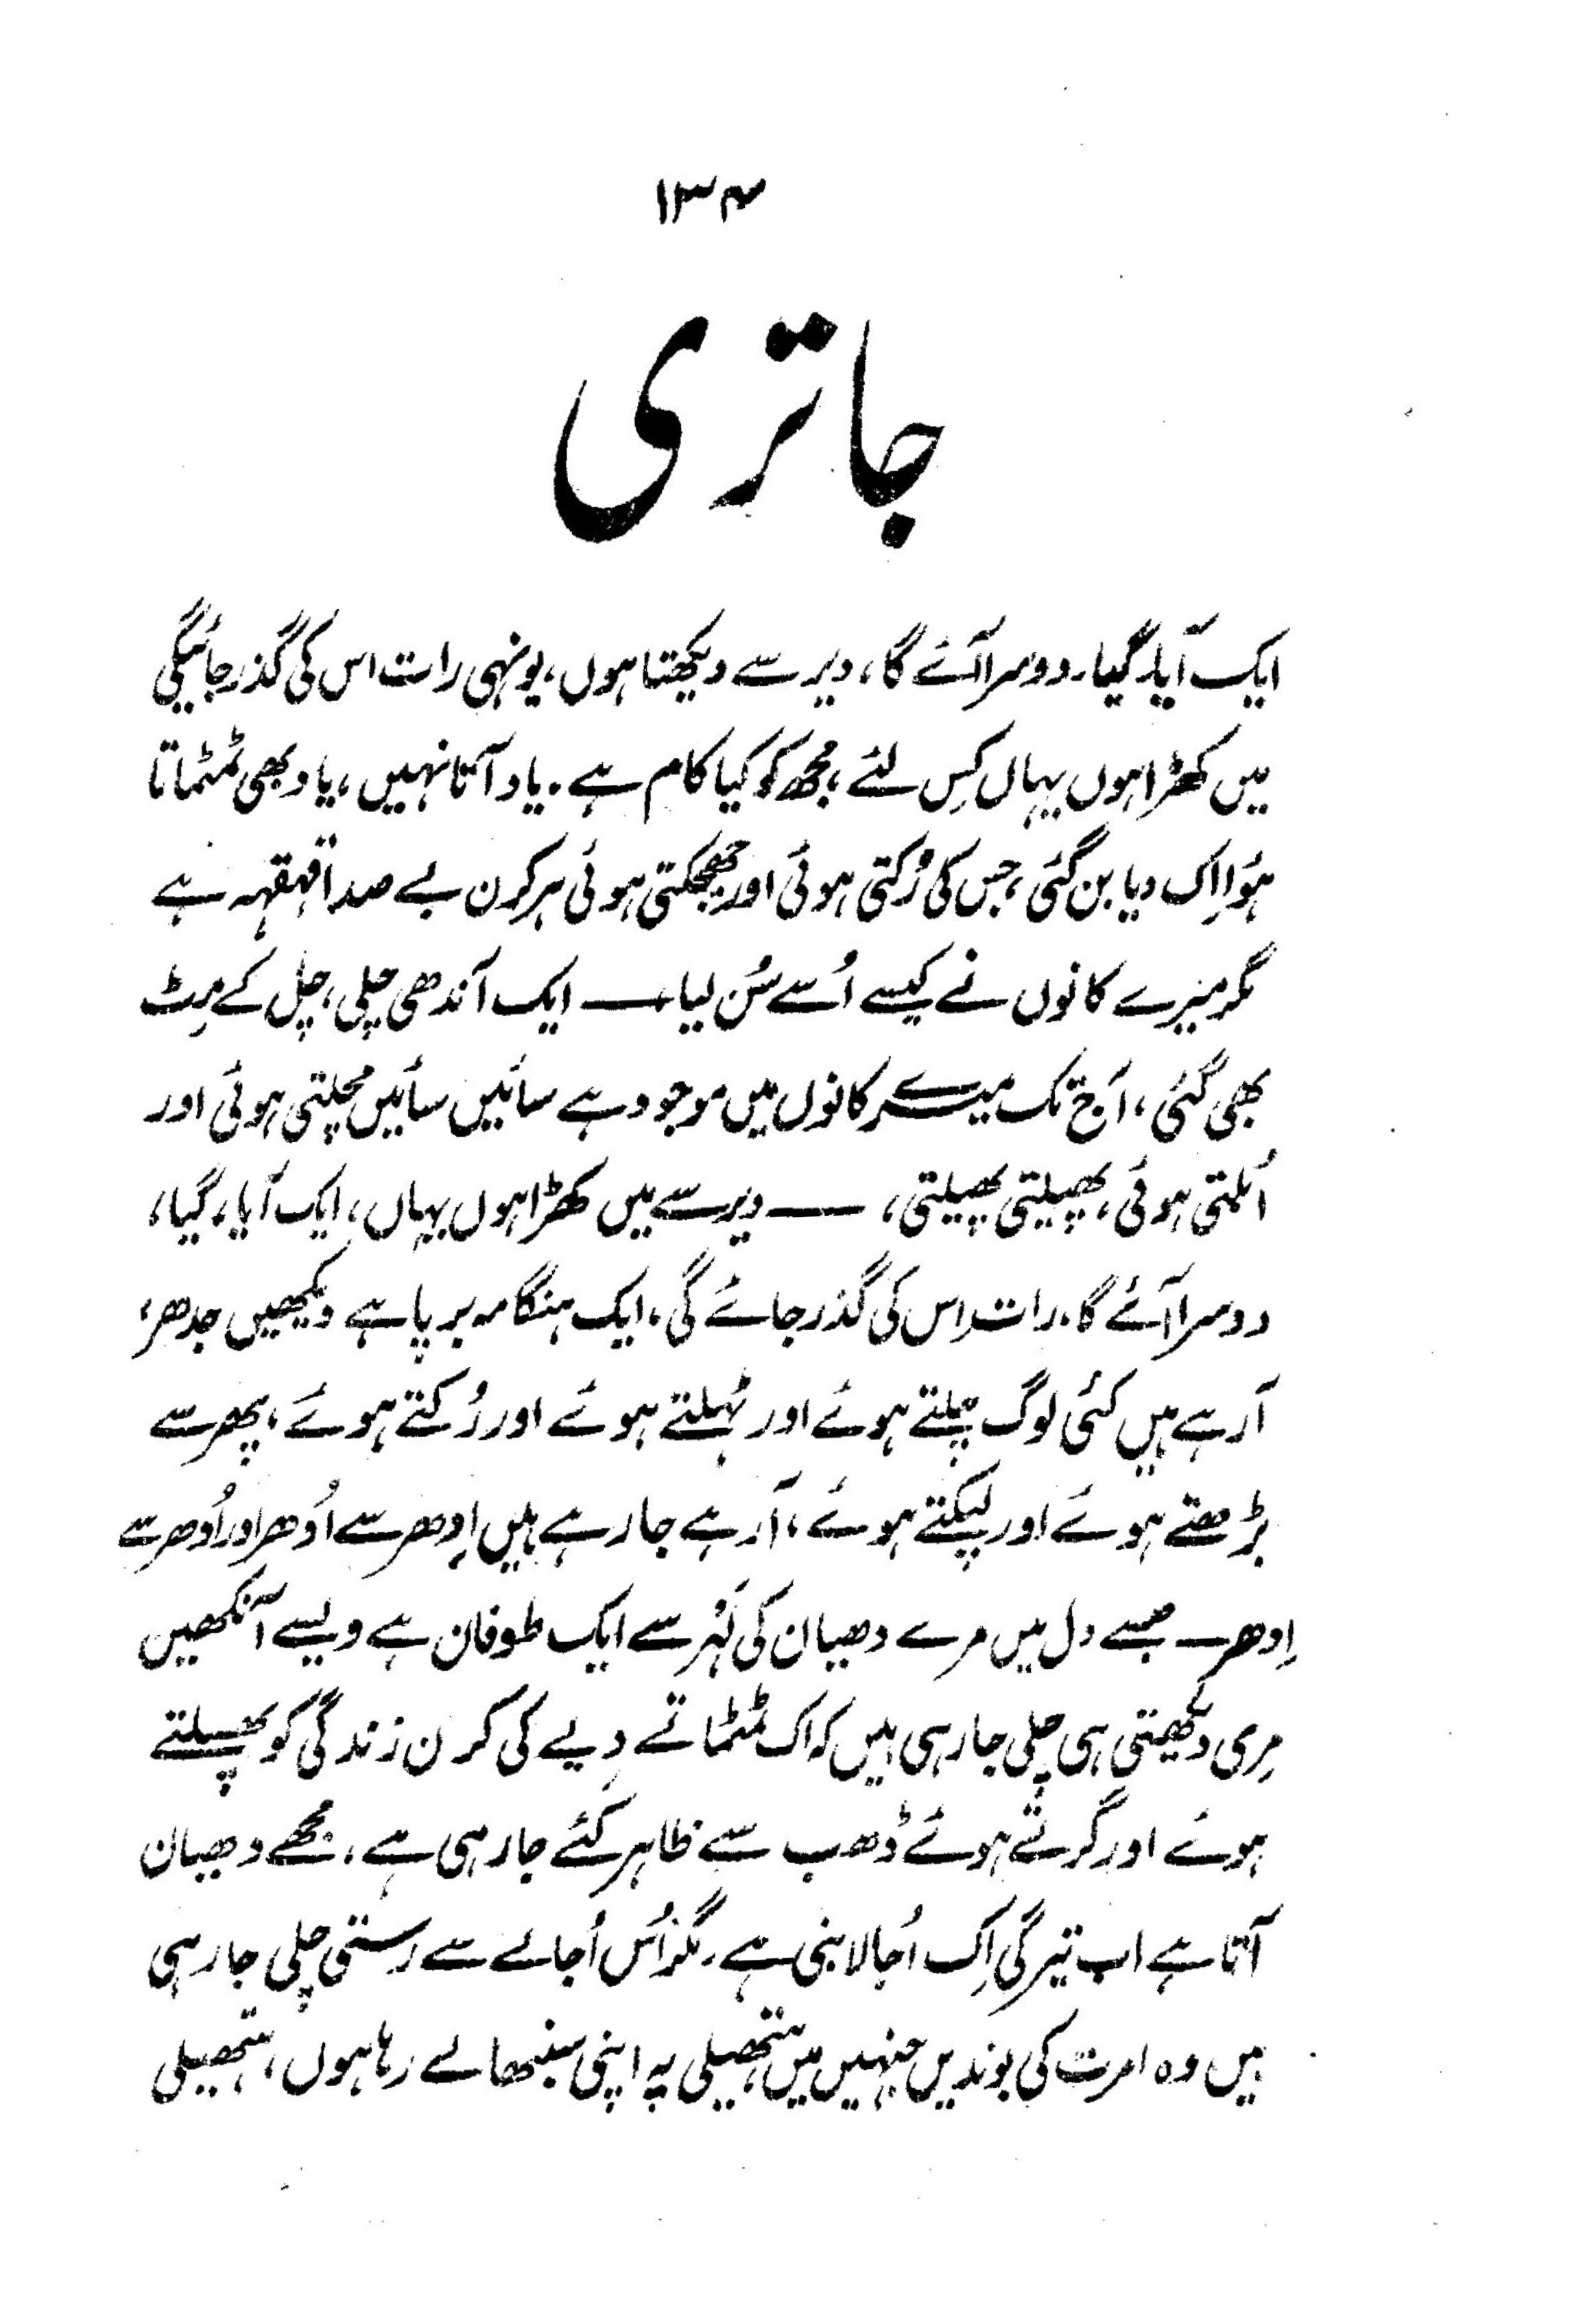 ۱۳۴
جاتری
ایک آیا۔ گیا۔ دوسرا آئے گا، دیر سے دیکھتا ہوں، یونہی رات اس کی گذر جائیگی
میں کھڑا ہوں یہاں کِس لئے، مجھ کو کیا کام ہے۔ یاد آتا نہیں، یاد بھی ٹمٹماتا
ہؤا اِک دیا بن گئی، جس کی رُکتی ہوئی اور جھجکتی ہوئی ہر کرن بے صدا قہقہہ ہے
مگر میرے کانوں نے کیسے اُسے سُن لیا، — ایک آندھی چلی، چل کے مِٹ
بھی گئی، آج تک میرے کانوں میں موجود ہے سائیں سائیں مچلتی ہوئی اور
اُبلتی ہوئی، پھیلتی پھیلتی، — دیر سے میں کھڑا ہوں یہاں، ایک آیا، گیا،
دوسرا آئے گا۔ رات اس کی گذر جائے گی، ایک ہنگامہ برپا ہے دیکھیں جدھر،
آرہے ہیں کئی لوگ چلتے ہوئے اور ٹہلتے ہوئے اور رُکتے ہوئے، پھر سے
بڑھتے ہوئے اور لپکتے ہوئے، آرہے جارہے ہیں اِدھر سے اُدھر اور اُدھر سے
اِدھر — جیسے دل میں مرے دھیان کی لہر سے ایک طوفان ہے ویسے آنکھیں
مِری دیکھتی ہی چلی جارہی ہیں کہ اک ٹمٹماتے دِیے کی کرن زندگی کو پھسلتے
ہوئے اور گرتے ہوئے ڈھب سے ظاہر کئے جارہی ہے، مجھے دھیان
آتا ہے اب تیرگی اِک اُجالا بنی ہے، مگر اُس اُجالے سے رستی چلی جارہی
ہیں وہ امرت کی بوندیں جنہیں میں ہتھیلی پہ اپنی سنبھالے رہا ہوں، ہتھیلی